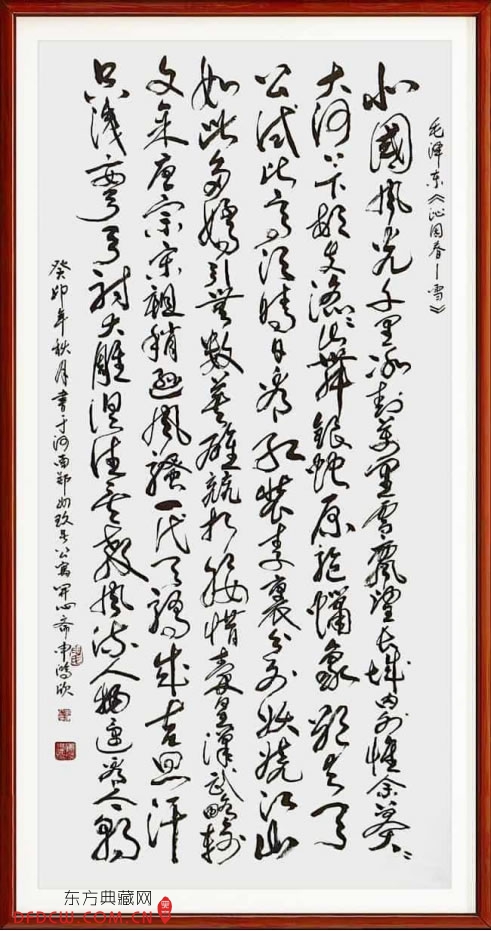 毛泽东《沁园春—雪》
北國風光千里冰封萬里雪飄望长城内外惟余莽々
大河上下顿失滔々山舞银蛇原驰蠟象欲与天
公试比高须晴日看红装素裹分外妖娆江山
如此多娇引無数英雄竞折腰惜秦皇漢武略输
文采唐宗宋祖稍逊風骚一代天骄成吉思汗
只识弯弓射大雕俱往矣数風流人物还看今朝
癸卯年秋月書于河南郑州公寓開心斋申鸿欣
东方典藏网
DFDCW.COM.CN